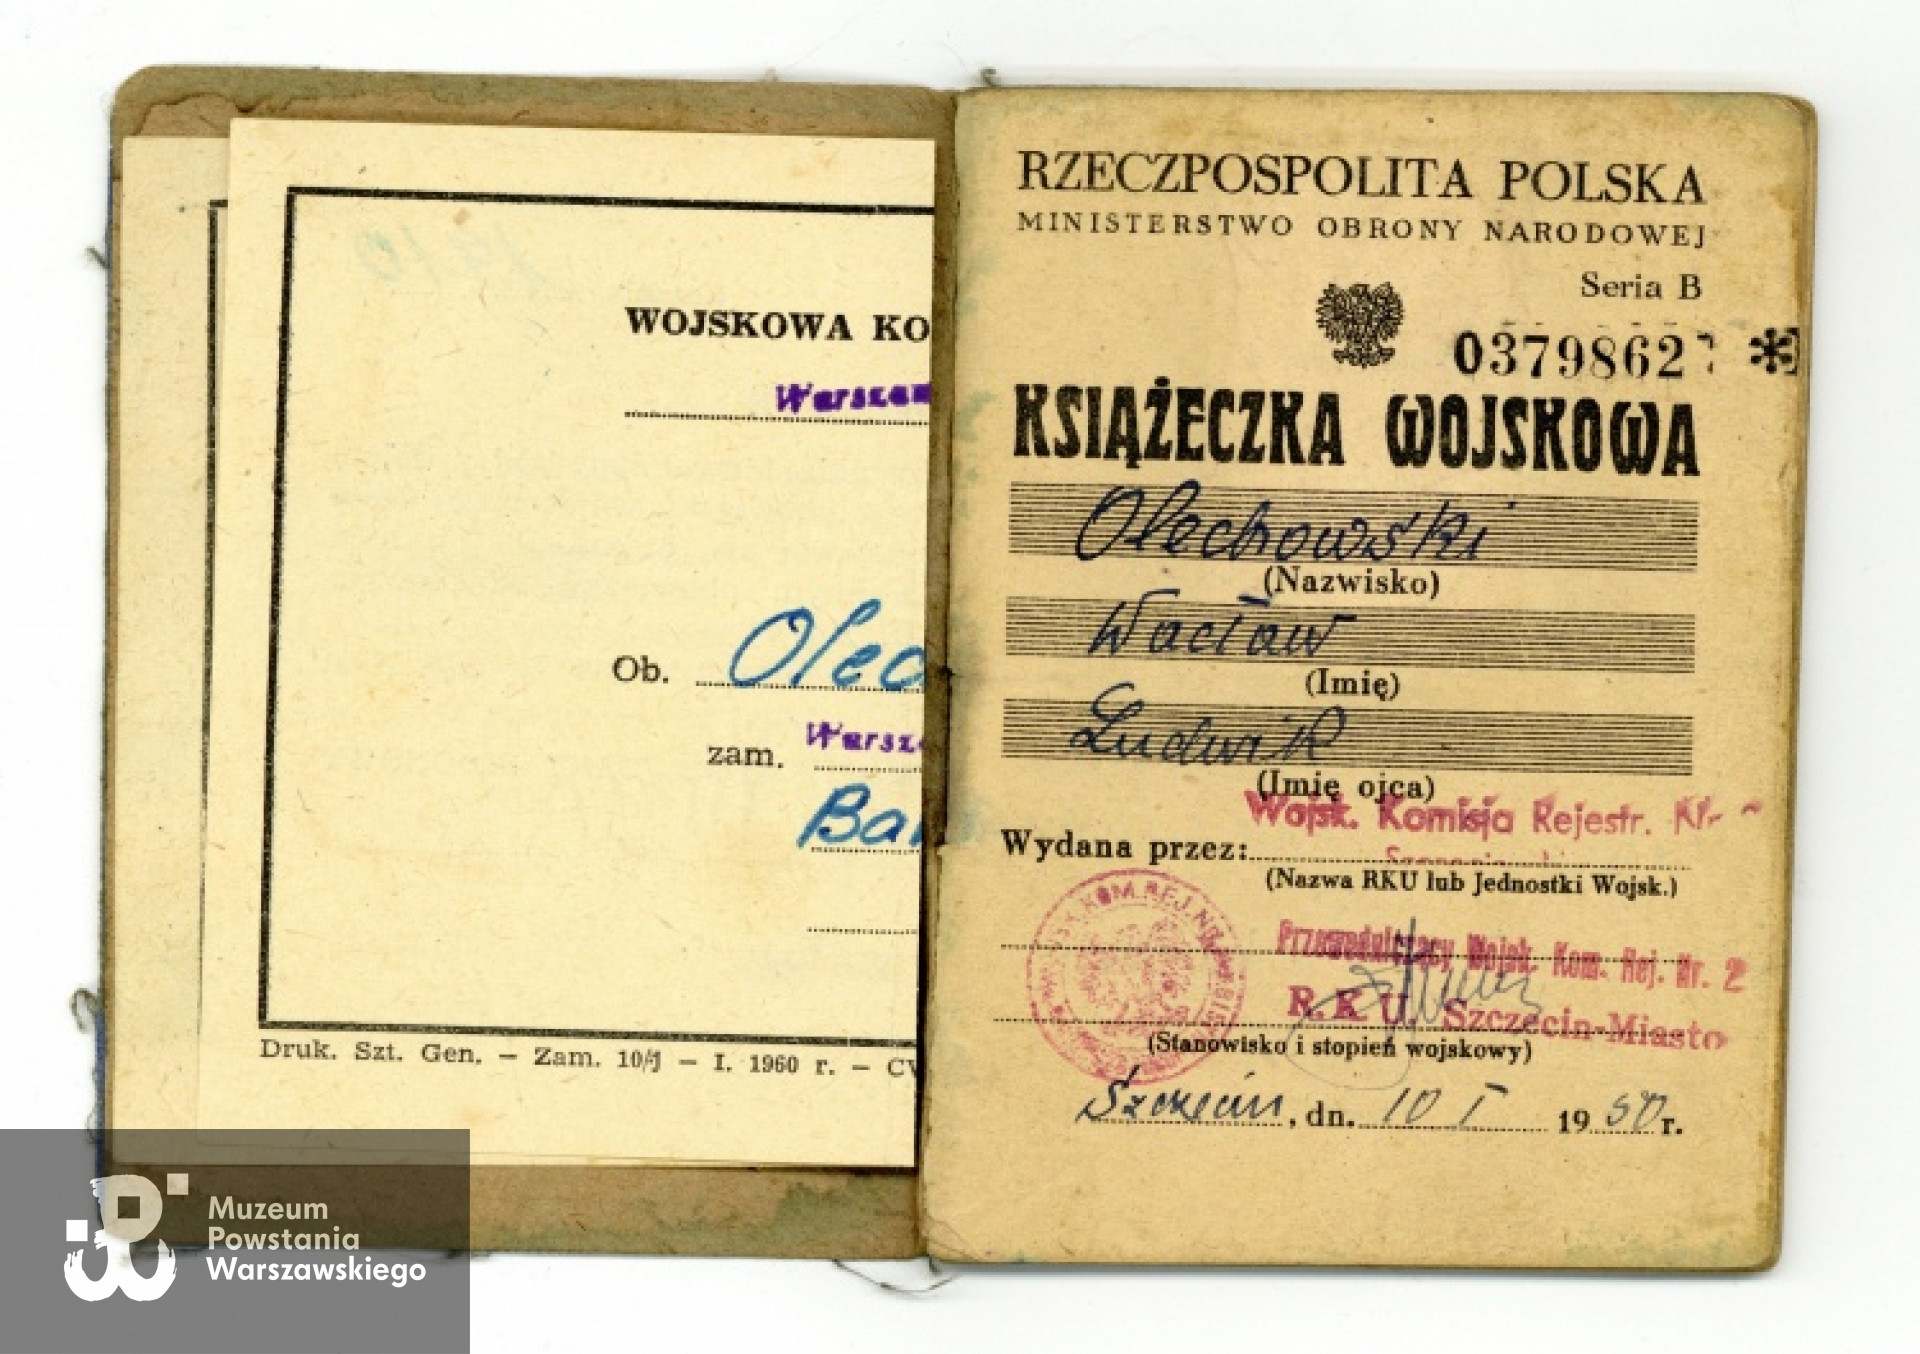 WOJSKOWA KO
Warszaw
Ob. Olec
zam. Warsz
Bar
Druk. Szt. Gen. — Zam. 10/j — I. 1960 r. — CW
RZECZPOSPOLITA POLSKA
MINISTERSTWO OBRONY NARODOWEJ
Seria B
0379862
KSIĄŻECZKA WOJSKOWA
Olechowski
(Nazwisko)
Wacław
(Imię)
Ludwik
(Imię ojca)
Wojsk. Komisja Rejestr. Nr.
Wydana przez:
(Nazwa RKU lub Jednostki Wojsk.)
Przewodniczący Wojsk. Kom. Rej. Nr. 2
R.K.U. Szczecin-Miasto
(Stanowisko i stopień wojskowy)
Szczecin, dn. 10 I 1950 r.
Muzeum
Powstania
Warszawskiego